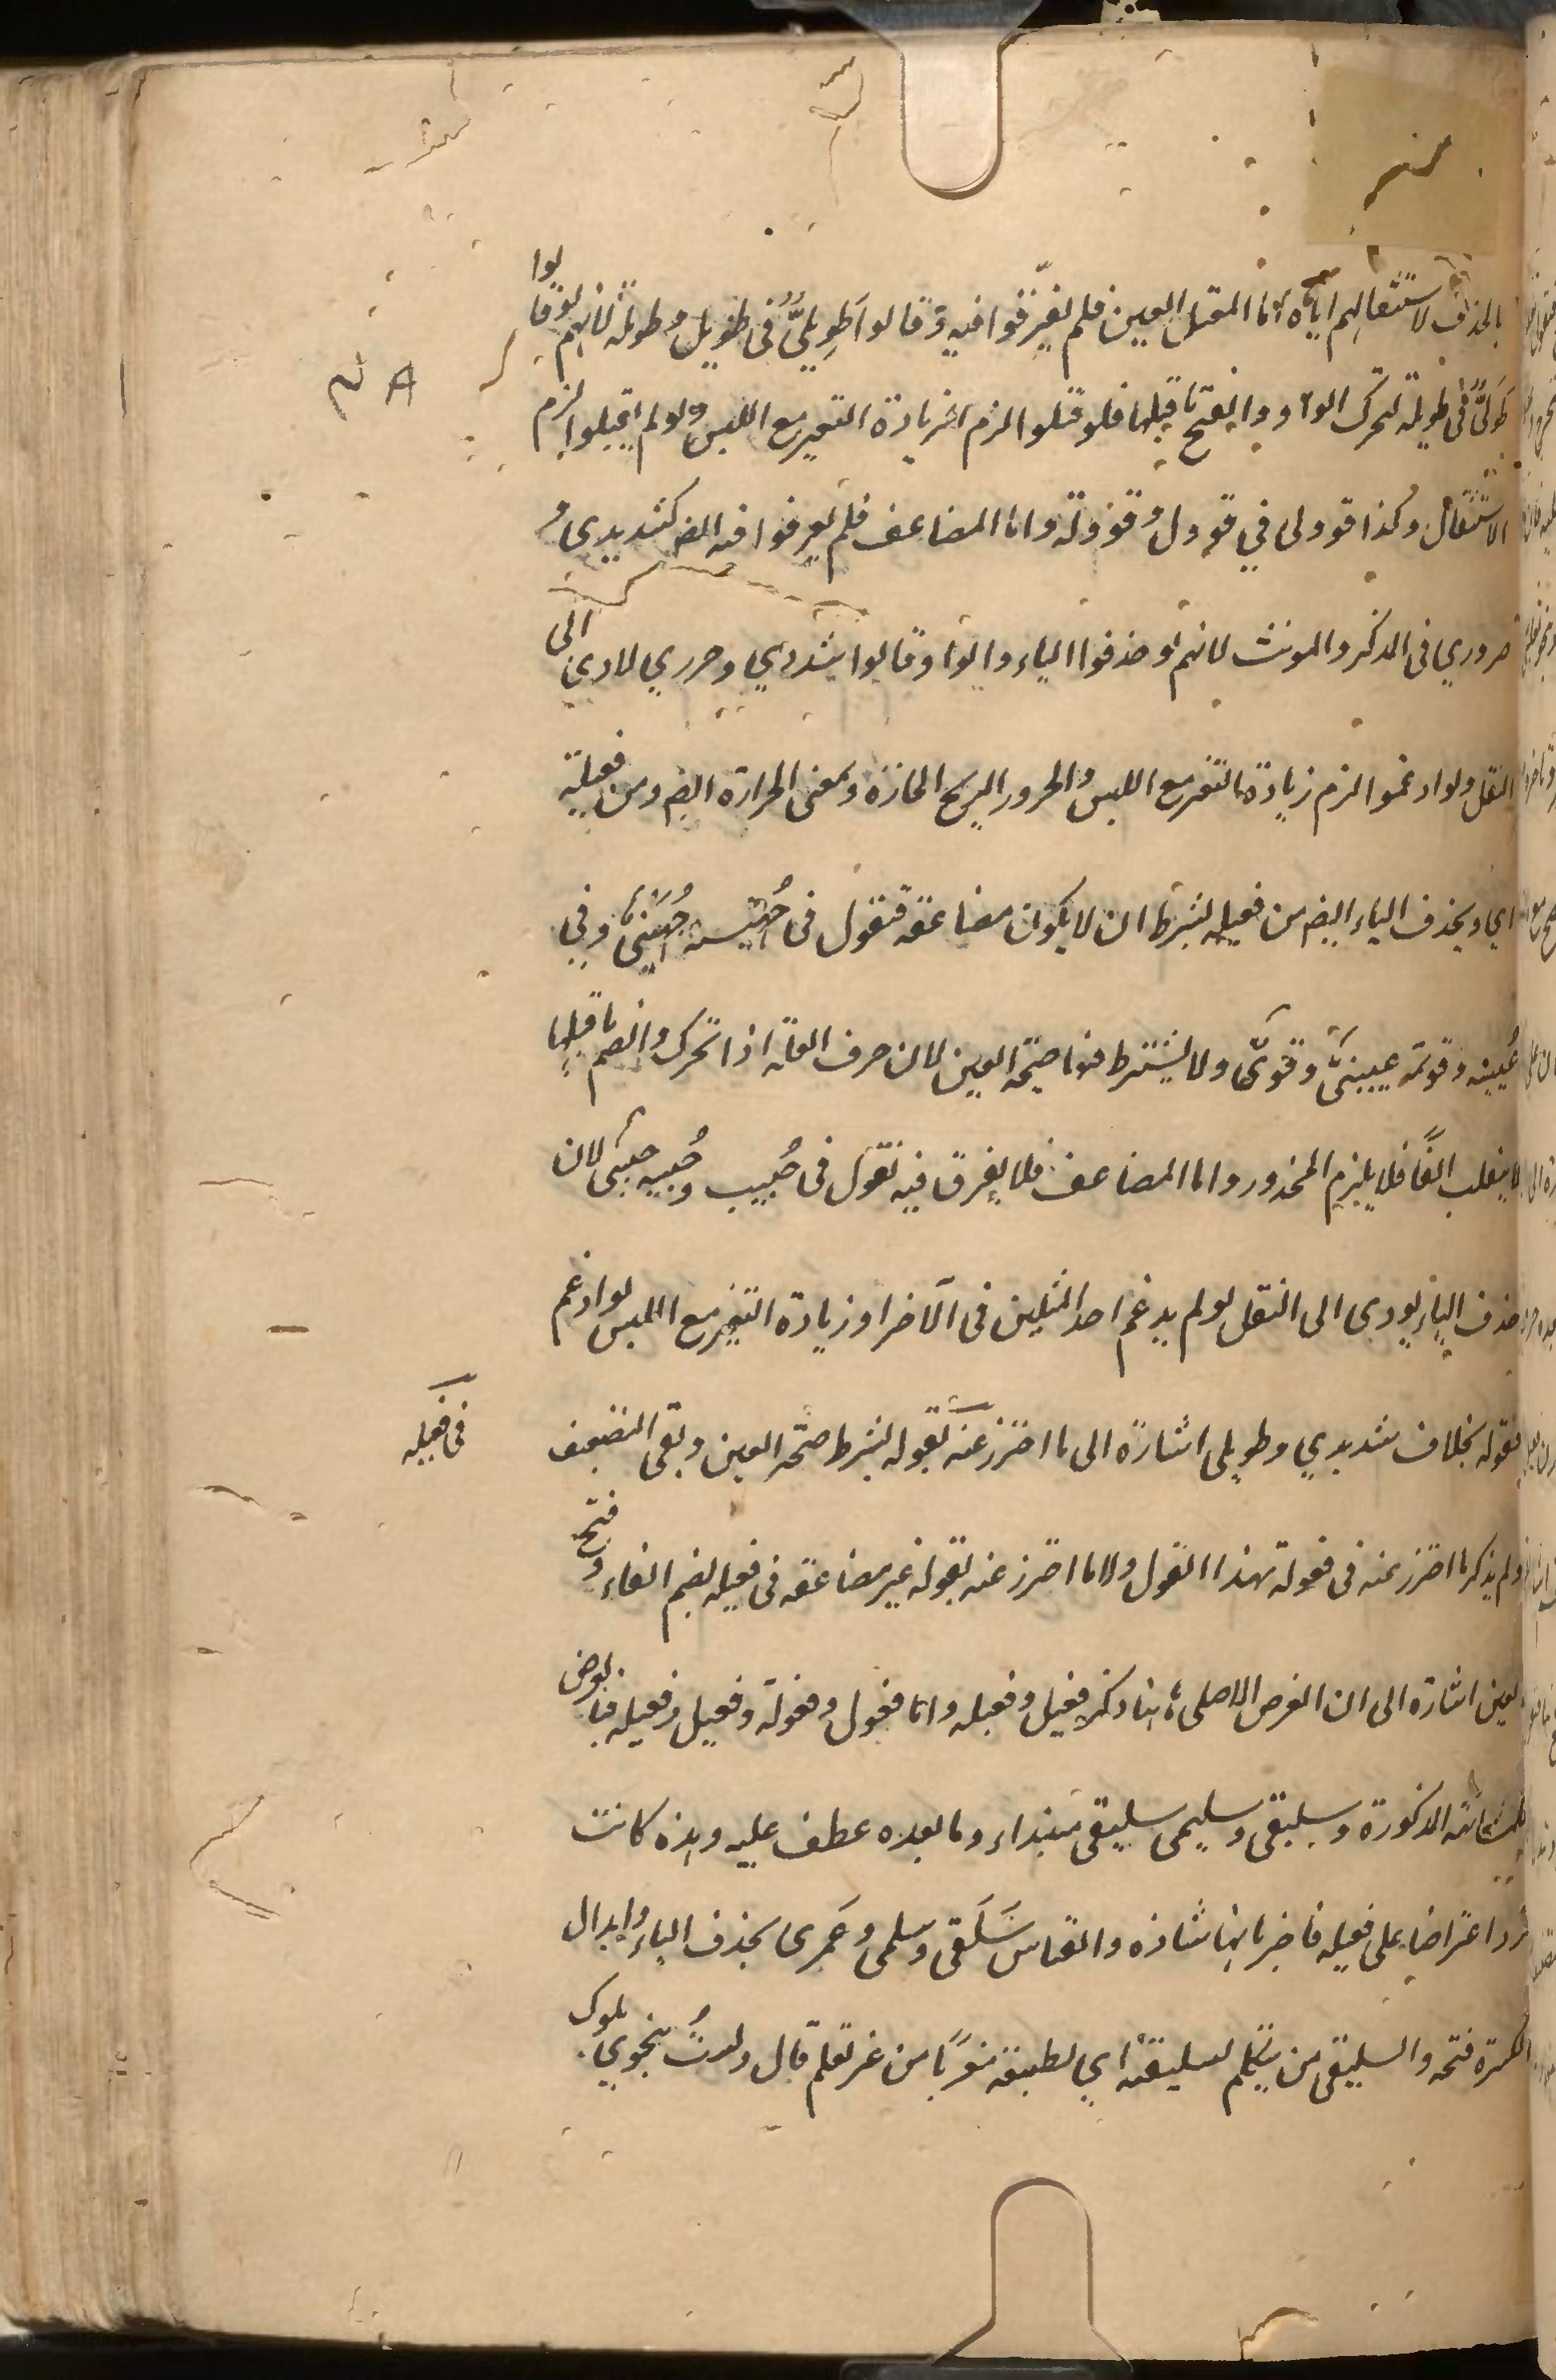 بالحذف لاستثقالهم اياه اما المعتل العين فلم يفرقوا فيه وقالوا طويليّ في طويل وطويلة لانهم لو قالوا
طوليّ في طويلة لتحرك الواو وانفتح ما قبلها فلو قلبوا لزم زيادة التغيير مع اللبس ولو لم يقلبوا لزم
الاستثقال وكذا قوولى في قوول وقوولة واما المضاعف فلم يفرقوا فيه ايض كشديدى و
حرورى في المذكر والمونث لانهم لو حذفوا الياء والواو وقالوا شددي وحررى لادى الى
الثقل ولو ادغموا لزم زيادة التغير مع اللبس والحرور الريح الحارة وبمعنى الحرارة ايض ومن فعيلة
اي ويحذف الياء ايض من فعيلة بشرط ان لا يكون مضاعفة فتقول في جُهينة جُهَنىّ وفي
عُيينة وقويمة عيينىّ وقومىّ ولا يشترط فيها صحة العين لان حرف العلة اذا تحرك وانضم ما قبلها
لا ينقلب الفًا فلا يلزم المحذور واما المضاعف فلا يفرق فيه تقول في حُبيب وحُبيبه حبيبى لان
حذف الياء يودى الى الثقل لو لم يدغم احد المثلين في الآخر او زيادة التغير مع اللبس لو ادغم
فقوله بخلاف شديدي وطويلى اشارة الى ما احترز عنه بقوله بشرط صحة العين ونفى التضعيف
في فعيله
ولم يذكر ما احترز عنه في فعولة بهذا القول ولا ما احترز عنه بقوله غير مضاعفة في فعيله بضم الفاء وفتح
العين اشارة الى ان الغرض الاصلى ههنا ذكر فعيل وفعيله واما فعول وفعولة وفعيل وفعيله فبالعرض
المذكورة وسليقى وسليمى سليقى مبتداء وما بعده عطف عليه وهذه كانت
ترد اعتراضا على فعيله فاخبر بانها شاذه والقياس سَلَقى وسلمى وعَمَرى بحذف الياء وابدال
الكسرة فتحه والسليقى من يتكلم بسليقته اي بطبيعته معربًا من غير تعلم قال ولستُ بنحوي يلوك